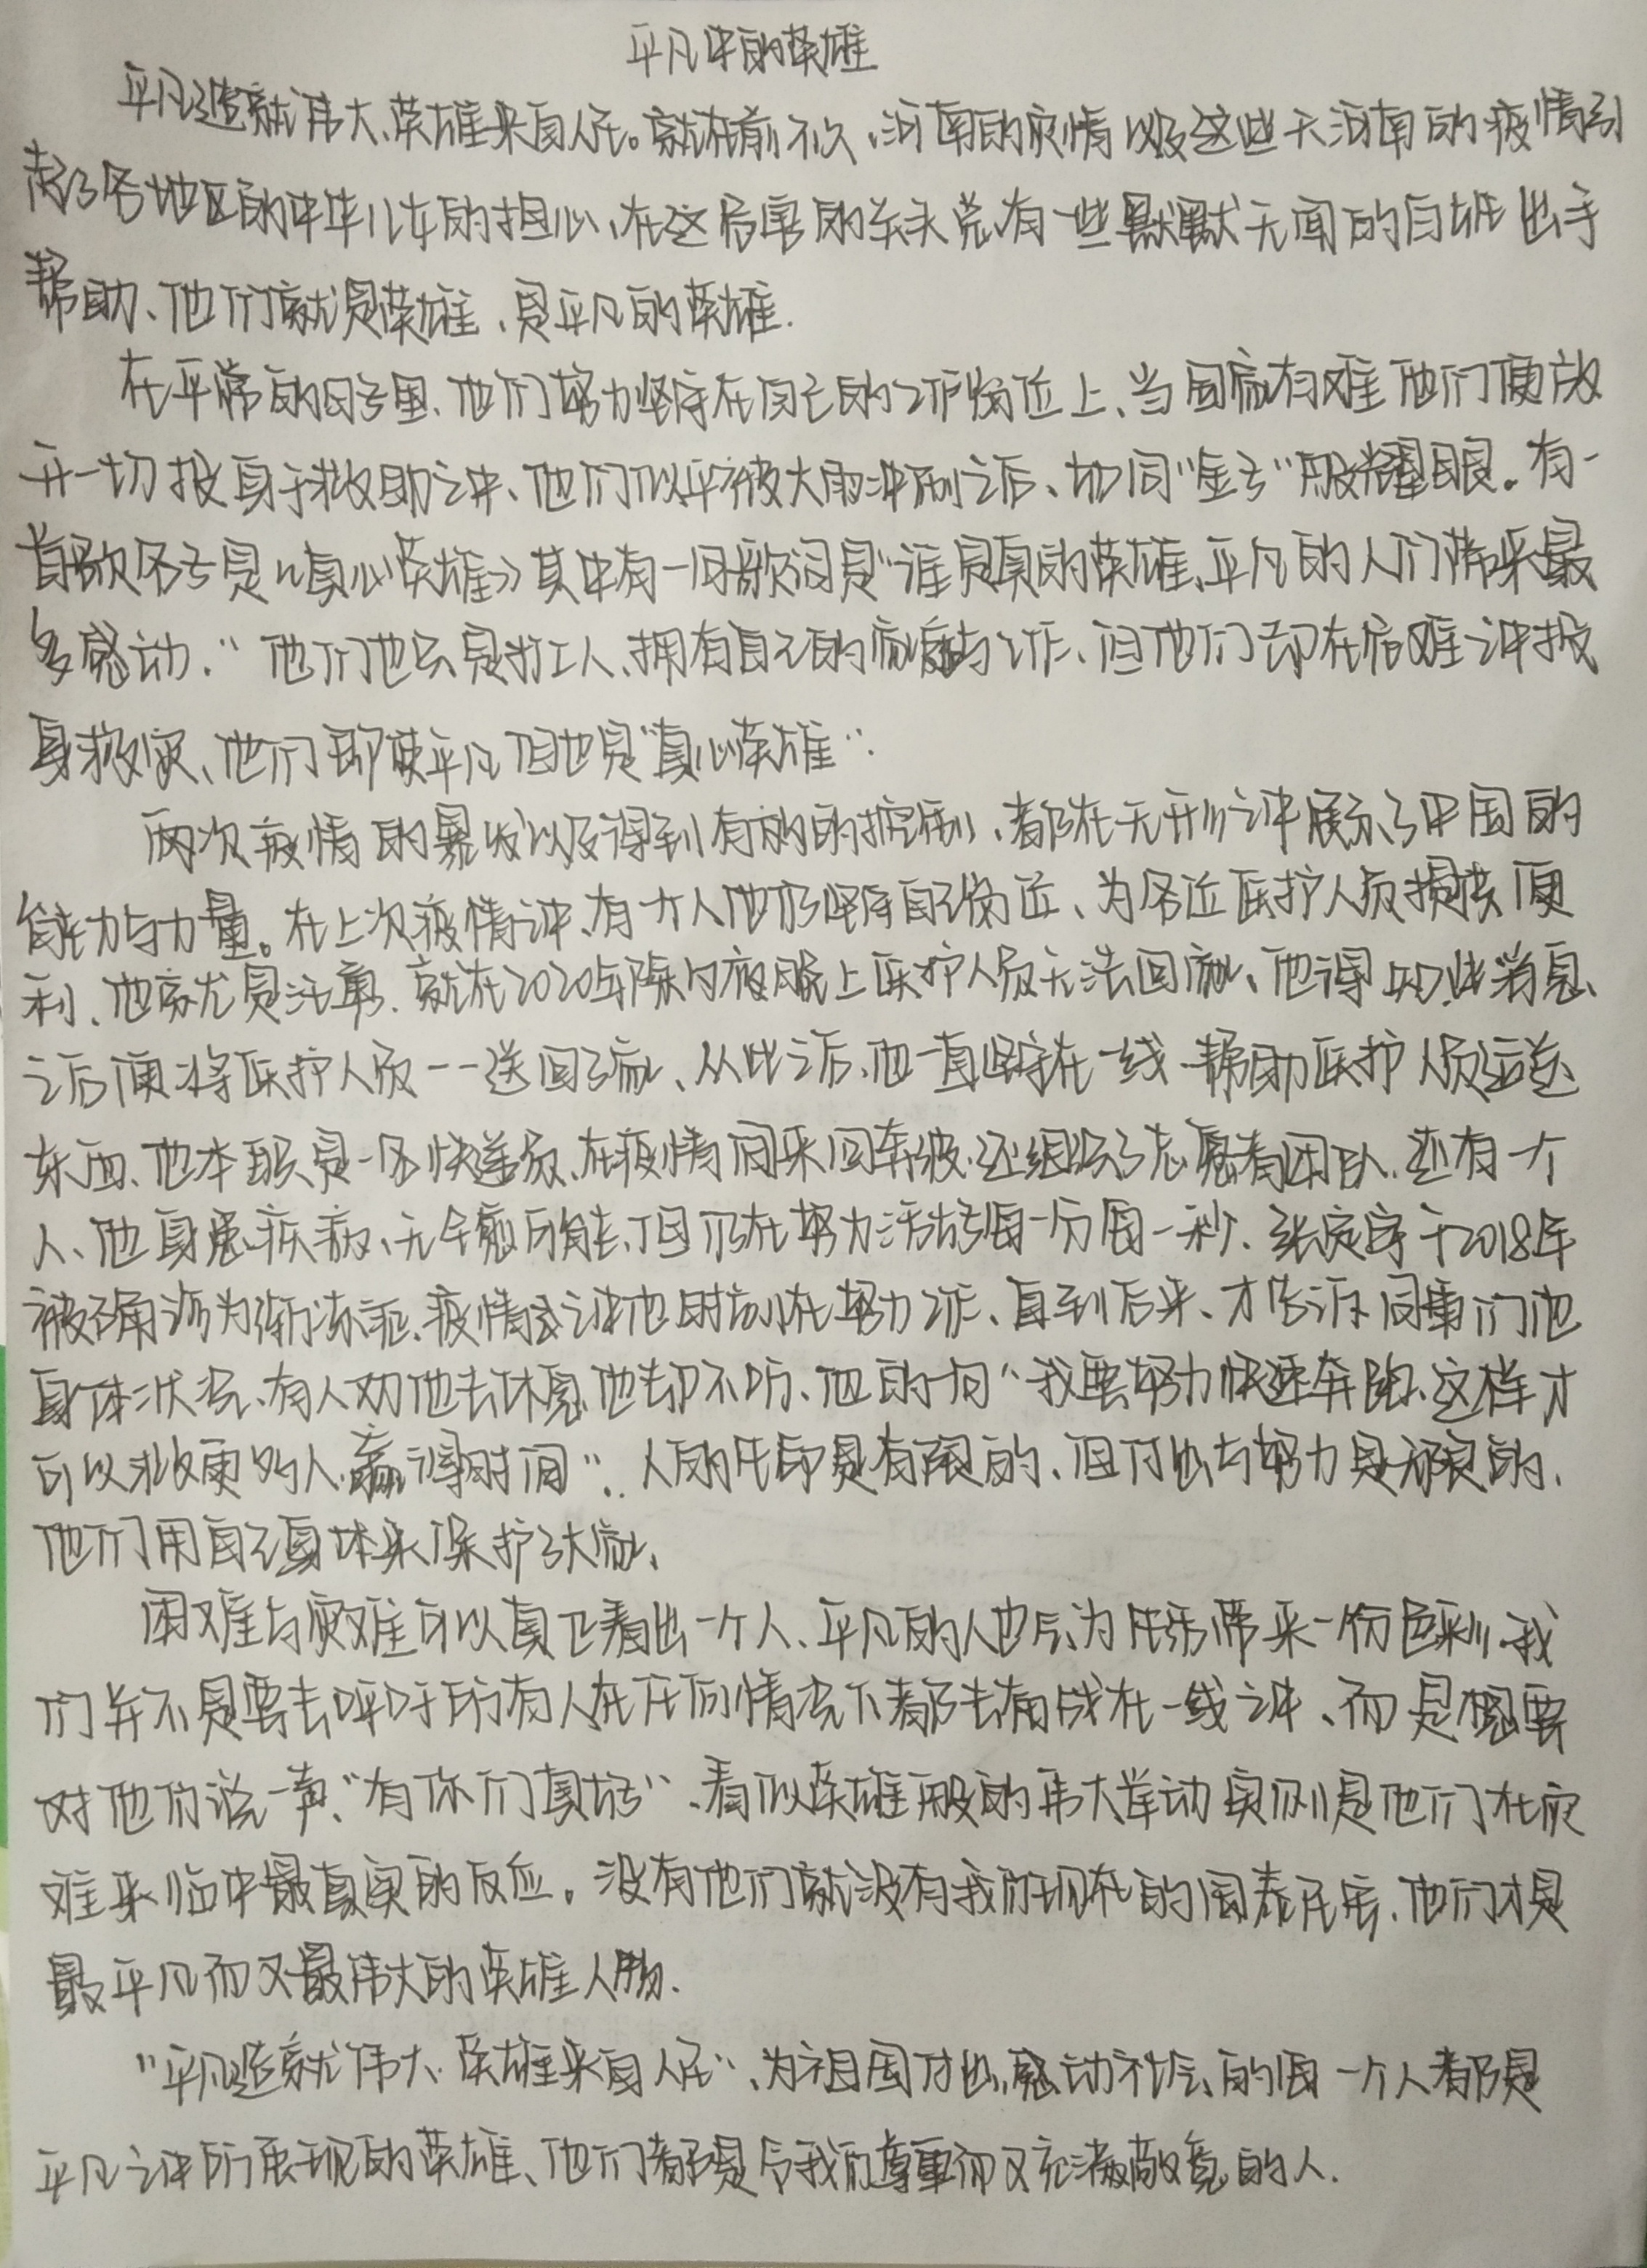 平凡中的英雄
平凡造就伟大、英雄来自人民。就在前不久、河南的灾情以及这些天河南的疫情引
起了各地区的中华儿女的担心、在这危害的关头总有一些默默无闻的自城出手
帮助、他们就是英雄、是平凡的英雄.
在平常的日子里、他们努力坚守在自己的工作岗位上、当国家有难他们便放
开一切投身于救助之中、他们似乎被大雨冲刷之后、如同"金子"般耀眼。有一
首歌名字是《真心英雄》其中有一句歌词是"谁是真的英雄、平凡的人们带来最
多感动."他们也只是打工人、拥有自己的家庭与工作、但他们却在危难之中投
身救灾、他们即使平凡但也是"真心英雄".
两次疫情的暴发以及得到有效的控制、都在无形之中展示了中国的
能力与力量。在上次疫情中、有一个人他仍坚守自己岗位、为各近医护人员提供便
利、他就是汪勇.就在2020年除夕夜晚上医护人员无法回家、他得知此消息
之后便将医护人员一一送回了家、从此之后、他一直坚守在一线帮助医护人员运送
东西、他本职是一名快递员、在疫情间来回奔波、还组织了志愿者团队.还有一个
人、他身患疾病、无全愈可能、但仍在努力活好每一分每一秒、张定宇于2018年
被确诊为渐冻症、疫情之中他时刻在努力工作、直到后来、才告诉同事们他
身体状况、有人劝他去休息他却不听、他的一句"我要努力快速奔跑、这样才
可以救更多的人、赢得时间".人的生命是有限的、但付出与努力是无限的、
他们用自己身体来保护了大家、
困难与灾难可以真正看出一个人、平凡的人也会为生活带来一份色彩、我
们并不是要去呼吁所有人在任何情况下都去奋战在一线之中、而是想要
对他们说一声、"有你们真好"、看似英雄般的伟大举动实则是他们在灾
难来临中最真实的反应。没有他们就没有我们现在的国泰民安、他们才是
最平凡而又最伟大的英雄人物.
"平凡造就伟大、英雄来自人民"、为祖国付出,感动社会的每一个人都是
平凡之中所展现的英雄、他们都是令我们尊重而又充满敬意的人.